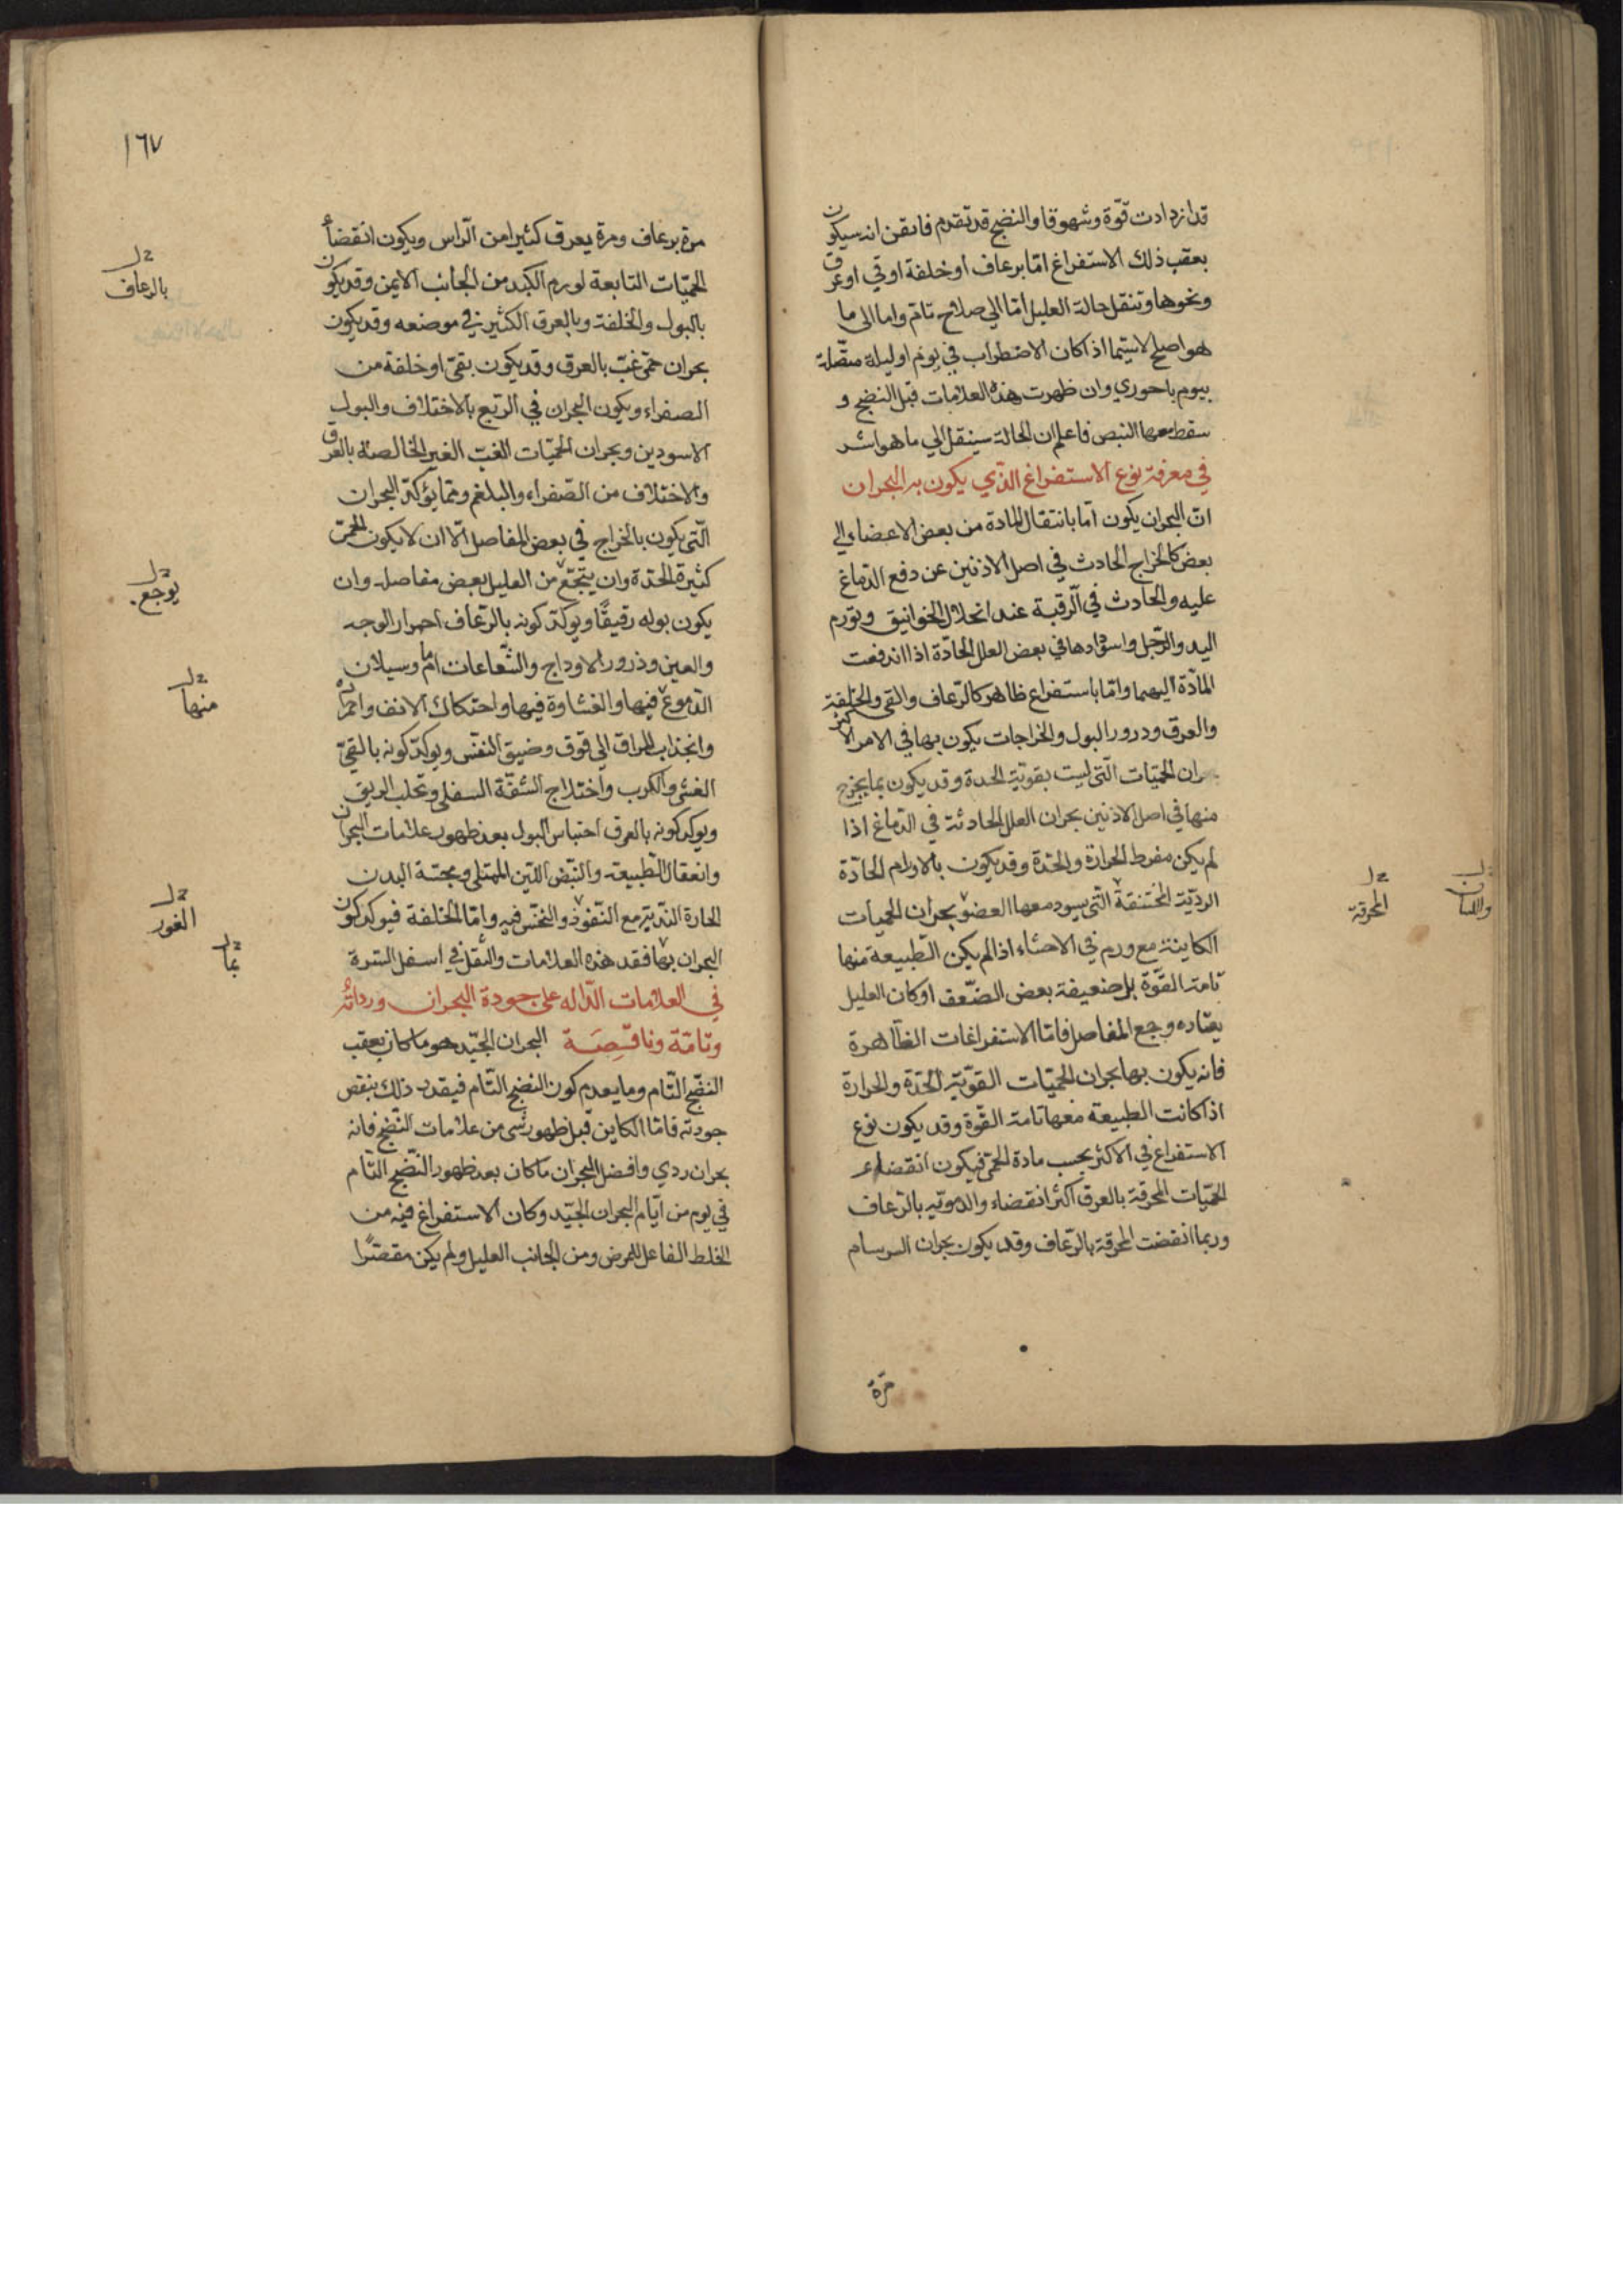 قد ازدادت قوّة وشهوقا والنضج قد تقدم فايقن انه سيكون
بعقب ذلك الاستفراغ امّا برعاف او خلفة او قي او عرق
ونحوها وتنقل حالة العليل امّا الي صلاح تامّ واما الى ما
هو اصلح لاسيّما اذا كان الاضطراب في يوم او ليلة متّصلة
بيوم باحوري وان ظهرت هذه العلامات قبل النضج و
سقط معها النبض فاعلم ان الحالة سينقل الي ما هو اشر
في معرفة نوع الاستفراغ الذّي يكون به البحران
انّ البحران يكون امّا بانتقال المادة من بعض الاعضاء الي
بعض كالخراج الحادث في اصل الاذنين عن دفع الدّماغ
عليه والحادث في الرّقبة عند انحلال الخوانيق وتورم
اليد والرّجل واسودادها في بعض العلل الحادّة اذا اندفعت
المادّة اليهما وامّا باستفراغ ظاهر كالرّعاف والقي والخلفة
والعرق ودرور البول والخراجات يكون بها في الامر الاكثر
بحران الحميّات الّتي ليست بقويّة الحدة وقد يكون بما يخرج
منها في اصل الاذنين بحران العلل الحادثة في الدّماغ اذا
لم يكن مفرط الحرارة والحدّة وقد يكون بالاورام الحادّة
الرديّة المختنقة الّتي يسود معها العضو بحران الحميات
الكاينة مع ورم في الاحشاء اذا لم يكن الطّبيعة منها
تامة القوّة بل ضعيفة بعض الضّعف او كان العليل
يعتاده وجع المفاصل فامّا الاستفراغات الظّاهرة
فانه يكون بها بحران الحميّات القويّة الحدّة والحرارة
اذا كانت الطبيعة معها تامة القوّة وقد يكون نوع
الاستفراغ في الاكثر بحسب مادة الحمّي فيكون انقضاء
الحميّات المحرقة بالعرق اكثر انقضاء والدمويّه بالرّعاف
وربما انقضت المحرقة بالرّعاف وقد يكون بحران السرسام
مرّة
المحرقة
واللسان
١٦٧
مرة برعاف ومرة يعرق كثيرا من الرّاس ويكون انقضاء
الحميّات التابعة لورم الكبد من الجانب الايمن وقد يكون
بالبول والخلفة وبالعرق الكثير في موضعه وقد يكون
بحران حمّي غبّ بالعرق وقد يكون بقيّ او خلفة من
الصفراء ويكون البحران في الرّبع بالاختلاف والبول
الاسودين وبحران الحميّات الغبّ الغير الخالصة بالعرق
والاختلاف من الصّفراء والبلغم وممّا يؤكد البحران
الّتي يكون بالخراج في بعض المفاصل الّا ان لا يكون الحمّي
كثيرة الحدّة وان يتجّع من العليل بعض مفاصله وان
يكون بوله رقيقًا ويوكّد كونه بالرّعاف احمرار الوجه
والعين ودرور الاوداج والشّعاعات امّا وسيلان
الدّموع فيها والغشاوة فيها واحتكاك الانف واحمراره
وانجذاب المراق الي فوق وضيق النفّس ويوكّد كونه بالقيّ
الغشي والكرب واختلاج الشّفّة السفلي وتحلب الريق
ويوكد كونه بالعرق احتباس البول بعد ظهور علامات البحران
وانعقال الطّبيعة والنبّض اللّين الممتلي ومجسّة البدن
الحارة النّديّة مع النّفوذ والنخّس فيه وامّا الخلفة فيوكد كون
البحران بها فقد هذه العلامات والثّقل في اسفل السّرة
في العلامات الدّاله على جودة البحران ورداته
وتامّة وناقصة البحران الجيّد هو ما كان بعقب
النضّج التّام وما يعدم كون النضج التّام فبقدر ذلك ينقص
جودته فامّا الكاين قبل ظهور شي من علامات النّضج فانه
بحران ردي وافضل البحران ما كان بعد ظهور النّضج التّام
في يوم من ايّام البحران الجيّد وكان الاستفراغ فيه من
الخلط الفاعل للمرض ومن الجانب العليل ولم يكن مقصّرا
بالرعاف
يوجع
منها
الغور
بما